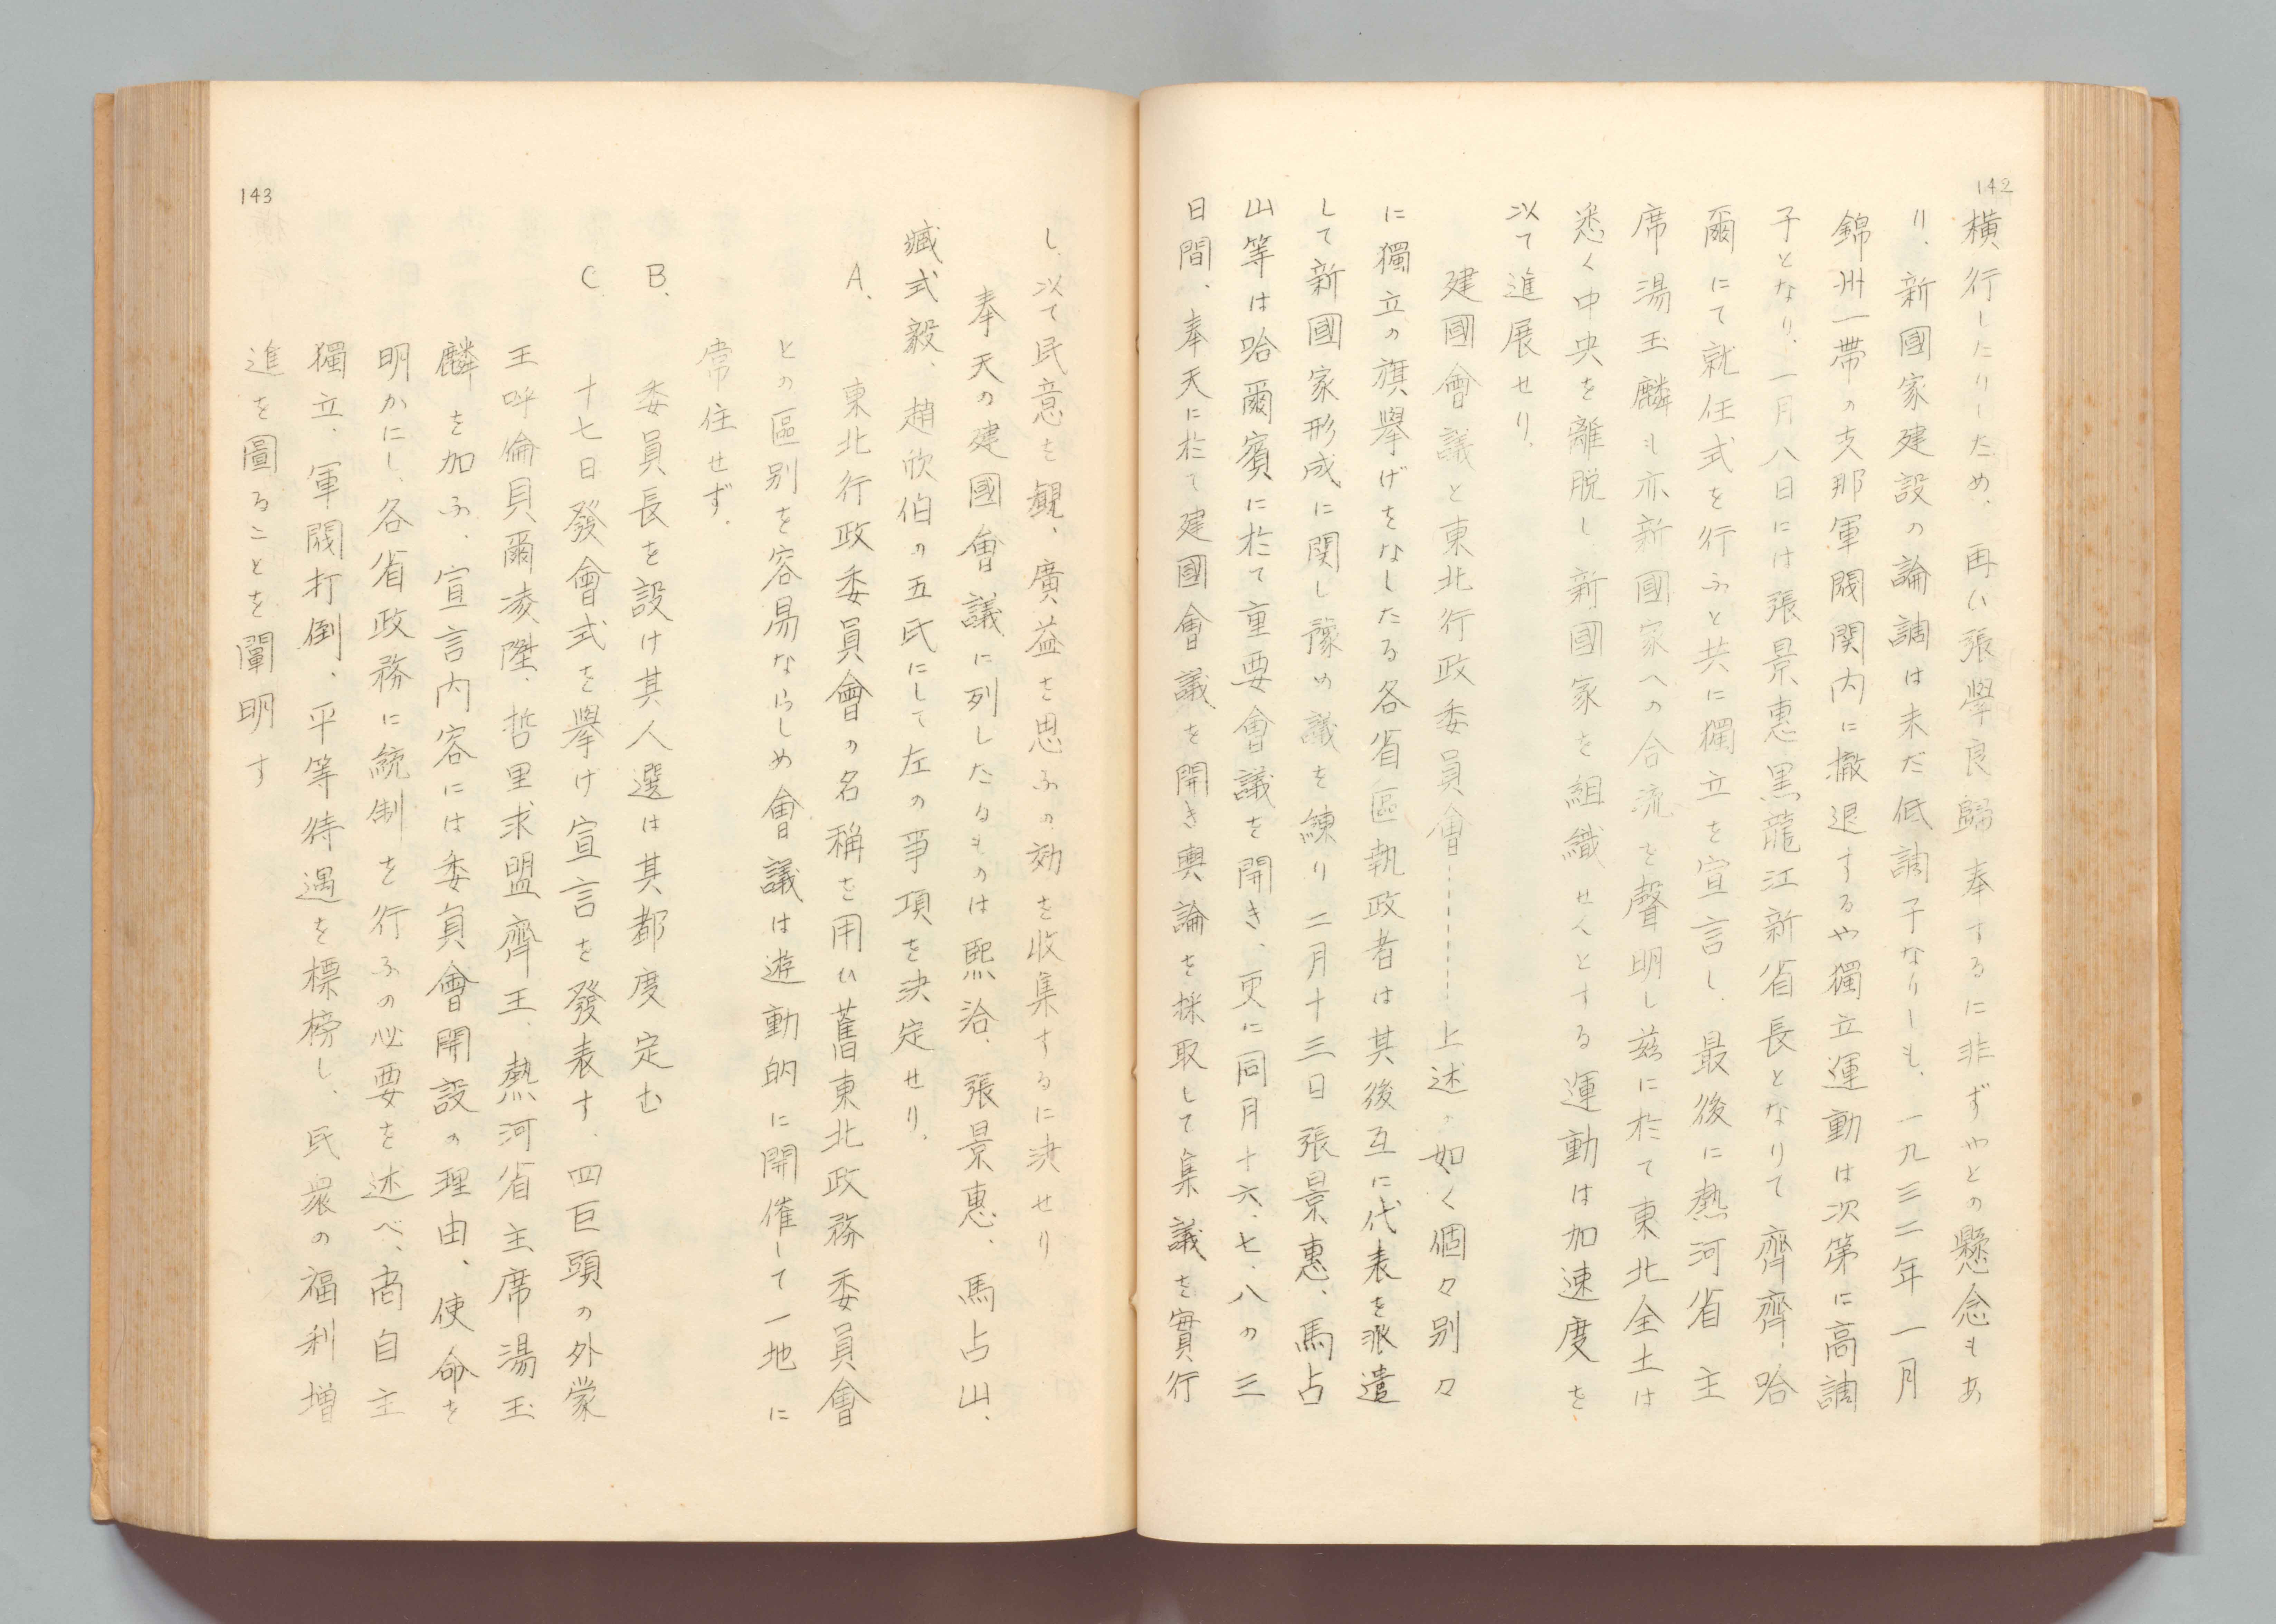 142
横行したりしため、再び張學良歸奉するに非ずやとの懸念もあ
り、新國家建設の論調は未だ低調子なりしも、一九三二年一月
錦洲一帯の支那軍閥関内に撤退するや獨立運動は次第に高調
子となり、一月八日には張景惠黒龍江新省長となりて齊齊哈
爾にて就任式を行ふと共に獨立を宣言し、最後に熱河省主
席湯玉麟も亦新國家への合流を聲明し茲に於て東北全土は
悉く中央を離脱し新國家を組織せんとする運動は加速度を
以て進展せり。
建國會議と東北行政委員會………上述の如く個々別々
に獨立の旗擧げをなしたる各省區執政者は其後互に代表を派遣
して新國家形成に関し豫め議を練り二月十三日張景惠、馬占
山等は哈爾賓に於て重要會議を開き、更に同月十六、七、八の三
日間、奉天に於て建國會議を開き輿論を採取して集議を實行
し、以て民意を覩、廣益を思ふの効を收集するに決せり
奉天の建國會議に列したるものは熙洽、張景惠、馬占山、
臧式毅、趙欣伯の五氏にして左の事項を決定せり。
A. 東北行政委員會の名稱を用ひ舊東北政務委員會
との區別を容易ならしめ會議は遊動的に開催して一地に
常住せず.
B. 委員長を設け其人選は其都度定む
C 十七日發會式を擧げ宣言を發表す.四巨頭の外蒙
王呼倫貝爾凌陞、哲里求盟齊王、熱河省主席湯玉
麟を加ふ、宣言内容には委員會開設の理由、使命を
明かにし、各省政務に統制を行ふの必要を述べ、商自主
獨立、軍閥打倒、平等待遇を標榜し、民衆の福利増
進を圖ることを闡明す
143